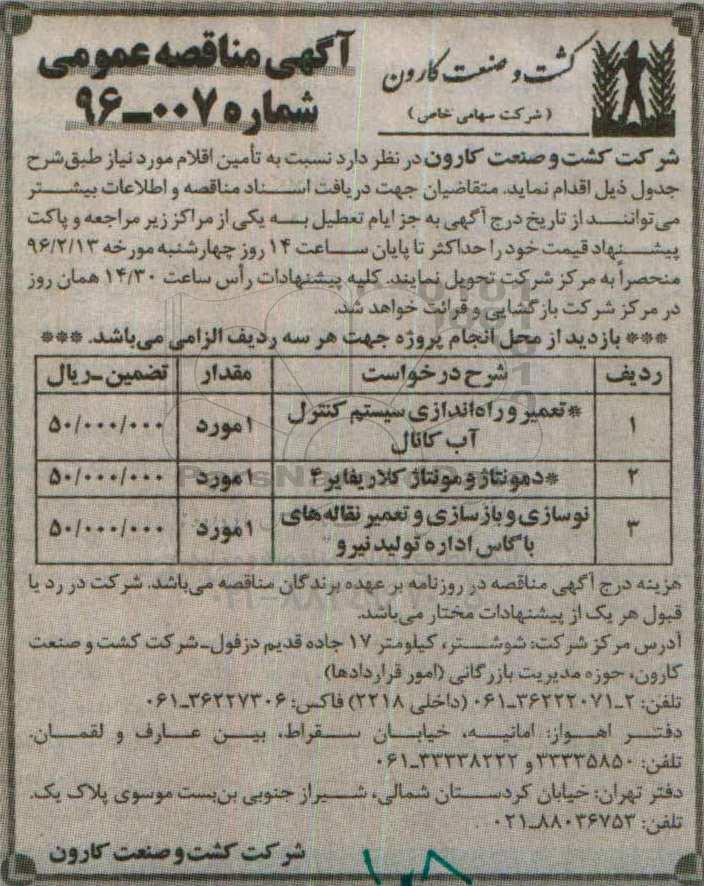 کشت و صنعت کارون
(شرکت سهامی خاص)
آگهی مناقصه عمومی
شماره ۰۰۷-۹۶
شرکت کشت و صنعت کارون در نظر دارد نسبت به تأمین اقلام مورد نیاز طبق شرح
جدول ذیل اقدام نماید. متقاضیان جهت دریافت اسناد مناقصه و اطلاعات بیشتر
می‌توانند از تاریخ درج آگهی به جز ایام تعطیل به یکی از مراکز زیر مراجعه و پاکت
پیشنهاد قیمت خود را حداکثر تا پایان ساعت ۱۴ روز چهارشنبه مورخه ۹۶/۲/۱۳
منحصراً به مرکز شرکت تحویل نمایند. کلیه پیشنهادات رأس ساعت ۱۴/۳۰ همان روز
در مرکز شرکت بازگشایی و قرائت خواهد شد.
*** بازدید از محل انجام پروژه جهت هر سه ردیف الزامی می‌باشد. ***
ردیف شرح درخواست مقدار تضمین-ریال
۱ *تعمیر و راه‌اندازی سیستم کنترل ۱ مورد ۵۰/۰۰۰/۰۰۰
آب کانال
۲ *دمونتاژ و مونتاژ کلاریفایر ۴ ۱ مورد ۵۰/۰۰۰/۰۰۰
۳ نوسازی و بازسازی و تعمیر نقاله‌های ۱ مورد ۵۰/۰۰۰/۰۰۰
باگاس اداره تولید نیرو
هزینه درج آگهی مناقصه در روزنامه بر عهده برندگان مناقصه می‌باشد. شرکت در رد یا
قبول هر یک از پیشنهادات مختار می‌باشد.
آدرس مرکز شرکت: شوشتر، کیلومتر ۱۷ جاده قدیم دزفول-شرکت کشت و صنعت
کارون، حوزه مدیریت بازرگانی (امور قراردادها)
تلفن: ۲-۳۶۲۲۲۰۷۱-۰۶۱ (داخلی ۲۲۱۸) فاکس: ۳۶۲۲۷۳۰۶-۰۶۱
دفتر اهواز: امانیه، خیابان سقراط، بین عارف و لقمان.
تلفن: ۳۳۳۳۵۸۵۰ و ۳۳۳۳۸۲۲۲-۰۶۱
دفتر تهران: خیابان کردستان شمالی، شیراز جنوبی بن‌بست موسوی پلاک یک.
تلفن: ۸۸۰۳۶۷۵۳-۰۲۱
شرکت کشت و صنعت کارون
۱۰۸